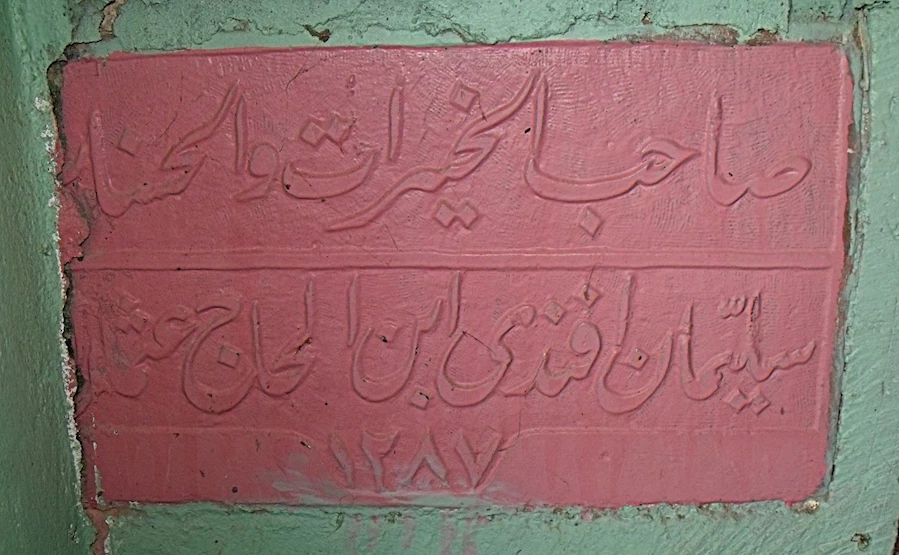 صاحب الخيرات والحسنا
سليمان افندى ابن الحاج
١٢٨٧